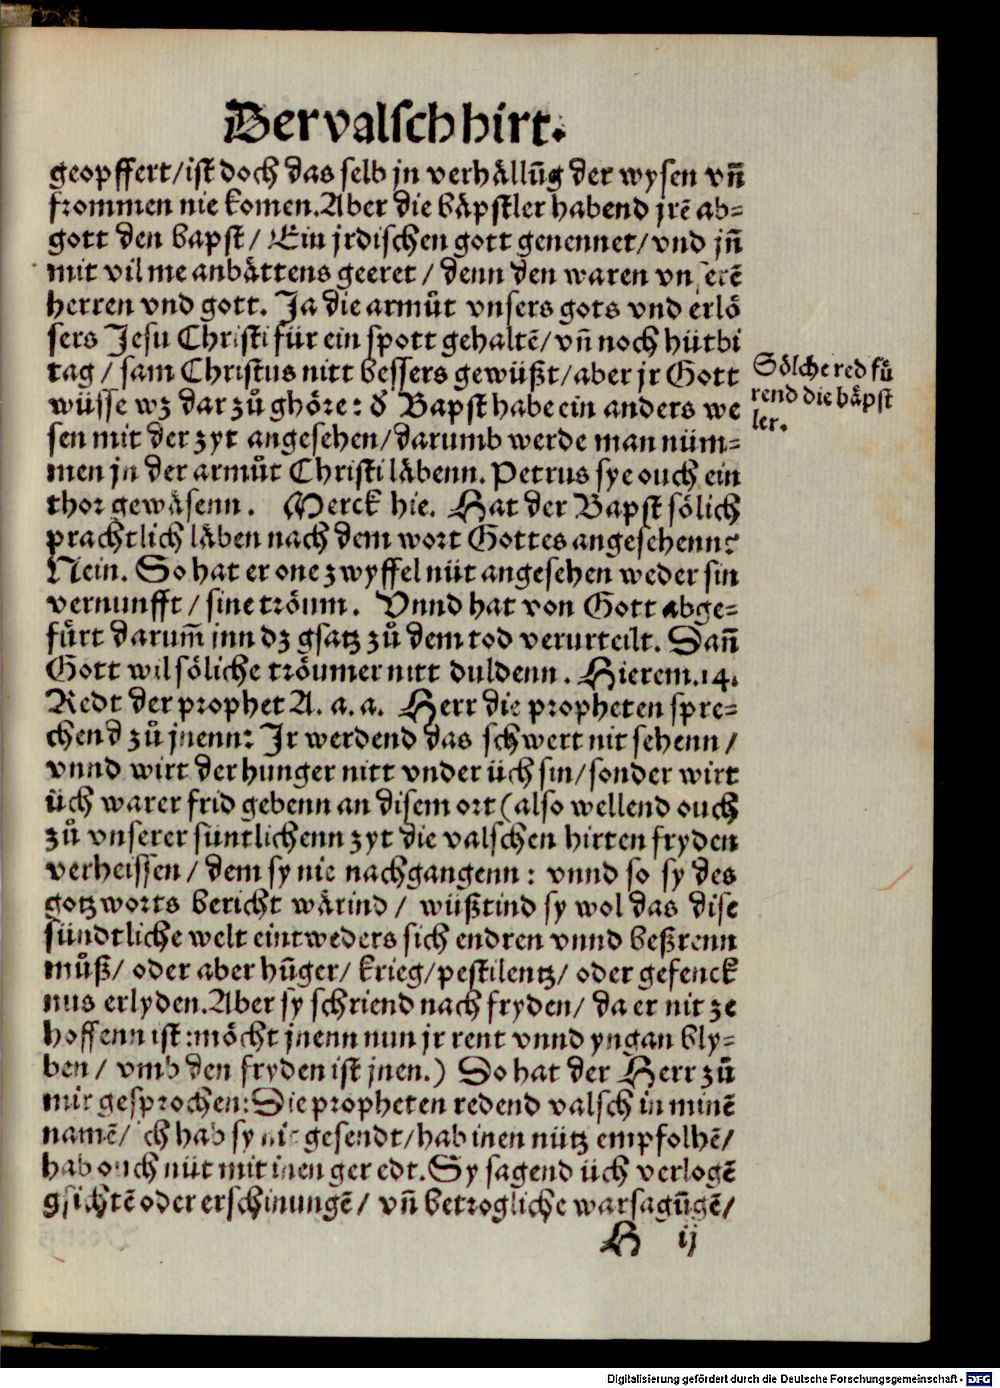 Der valsch hirt.
geopffert/ist doch das selb jn verhällūg der wysen vñ
frommen nie komen. Aber die bäpstler habend jrē ab-
gott den bapst/ Ein jrdischen gott genennet/vnd jñ
mit vil me anbättens geeret/ denn den waren vnserē
herren vnd gott. Ja die armůt vnsers gots vnd erlö
sers Jesu Christi für ein spott gehaltē/vñ noch hütbi
tag/ sam Christus nitt bessers gewüßt/aber jr Gott
wüsse wz dar zů ghöre: d̕ Bapst habe ein anders we
sen mit der zyt angesehen/darumb werde man nüm-
men jn der armůt Christi läbenn. Petrus sye ouch ein
thor gewäsenn. Merck hie. Hat der Bapst sölich
prachtlich läben nach dem wort Gottes angesehenn?
Nein. So hat er one zwyffel nüt angesehen weder sin
vernunfft/ sine tröum. Vnnd hat von Gott abge-
fůrt darum̄ jnn dz gsatz zů dem tod verurteilt. Dañ
Gott wil söliche tröumer nitt duldenn. Hierem.14.
Redt der prophet A. a. a. Herr die propheten spre-
chend zů jnenn: Jr werdend das schwert nit sehenn/
vnnd wirt der hunger nitt vnder üch sin/sonder wirt
üch warer frid gebenn an disem ort (also wellend ouch
zů vnserer süntlichenn zyt die valschen hirten fryden
verheissen/ dem sy nie nachgangenn: vnnd so sy des
gotzworts bericht wärind/ wüßtind sy wol das dise
sündtliche welt eintweders sich endren vnnd beßrenn
můß/ oder aber hūger/ krieg/pestilentz/ oder gefenck
nus erlyden. Aber sy schriend nach fryden/ da er nit ze
hoffenn ist: möcht jnenn nun jr rent vnnd yngan bly-
ben/ vmb den fryden ist jnen.) So hat der Herr zů
mir gesprochen: Die propheten redend valsch in minē
namē/ ich hab sy nit gesendt/hab inen nütz empfolhē/
hab ouch nüt mit inen geredt. Sy sagend üch verlogē
gsichtē oder erschinungē/ vñ betrogliche warsagūgē/
H ij
Sölche red fü
rend die bäpst
ler.
Digitalisierung gefördert durch die Deutsche Forschungsgemeinschaft - DFG